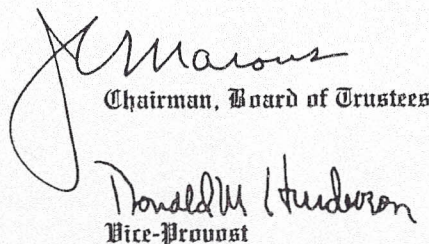 J C Marous
Chairman, Board of Trustees
Donald M Henderson
Vice-Provost